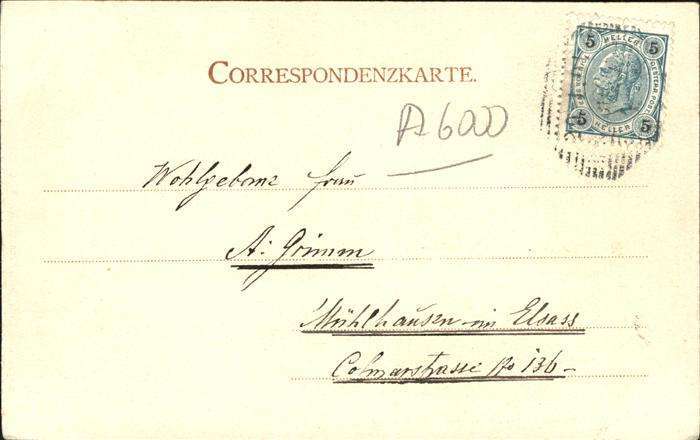 CORRESPONDENZKARTE.
5 HELLER 5
5 HELLER 5
A 6000
Wohlgeborne Frau
A: Grimm
Mühlhausen im Elsass
Colmarstrasse No 136-